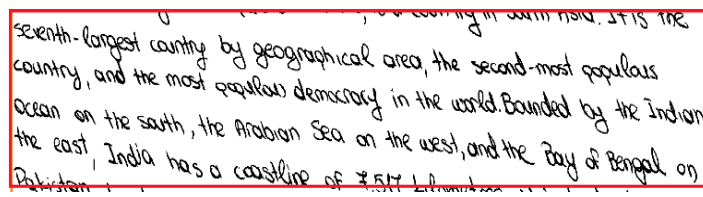 country in South Asia. It is the
seventh-largest country by geographical area, the second-most populous
country, and the most populous democracy in the world. Bounded by the Indian
Ocean on the south, the Arabian Sea on the west, and the Bay of Bengal on
the east, India has a coastline of 7,517 kilometres
Pakistan